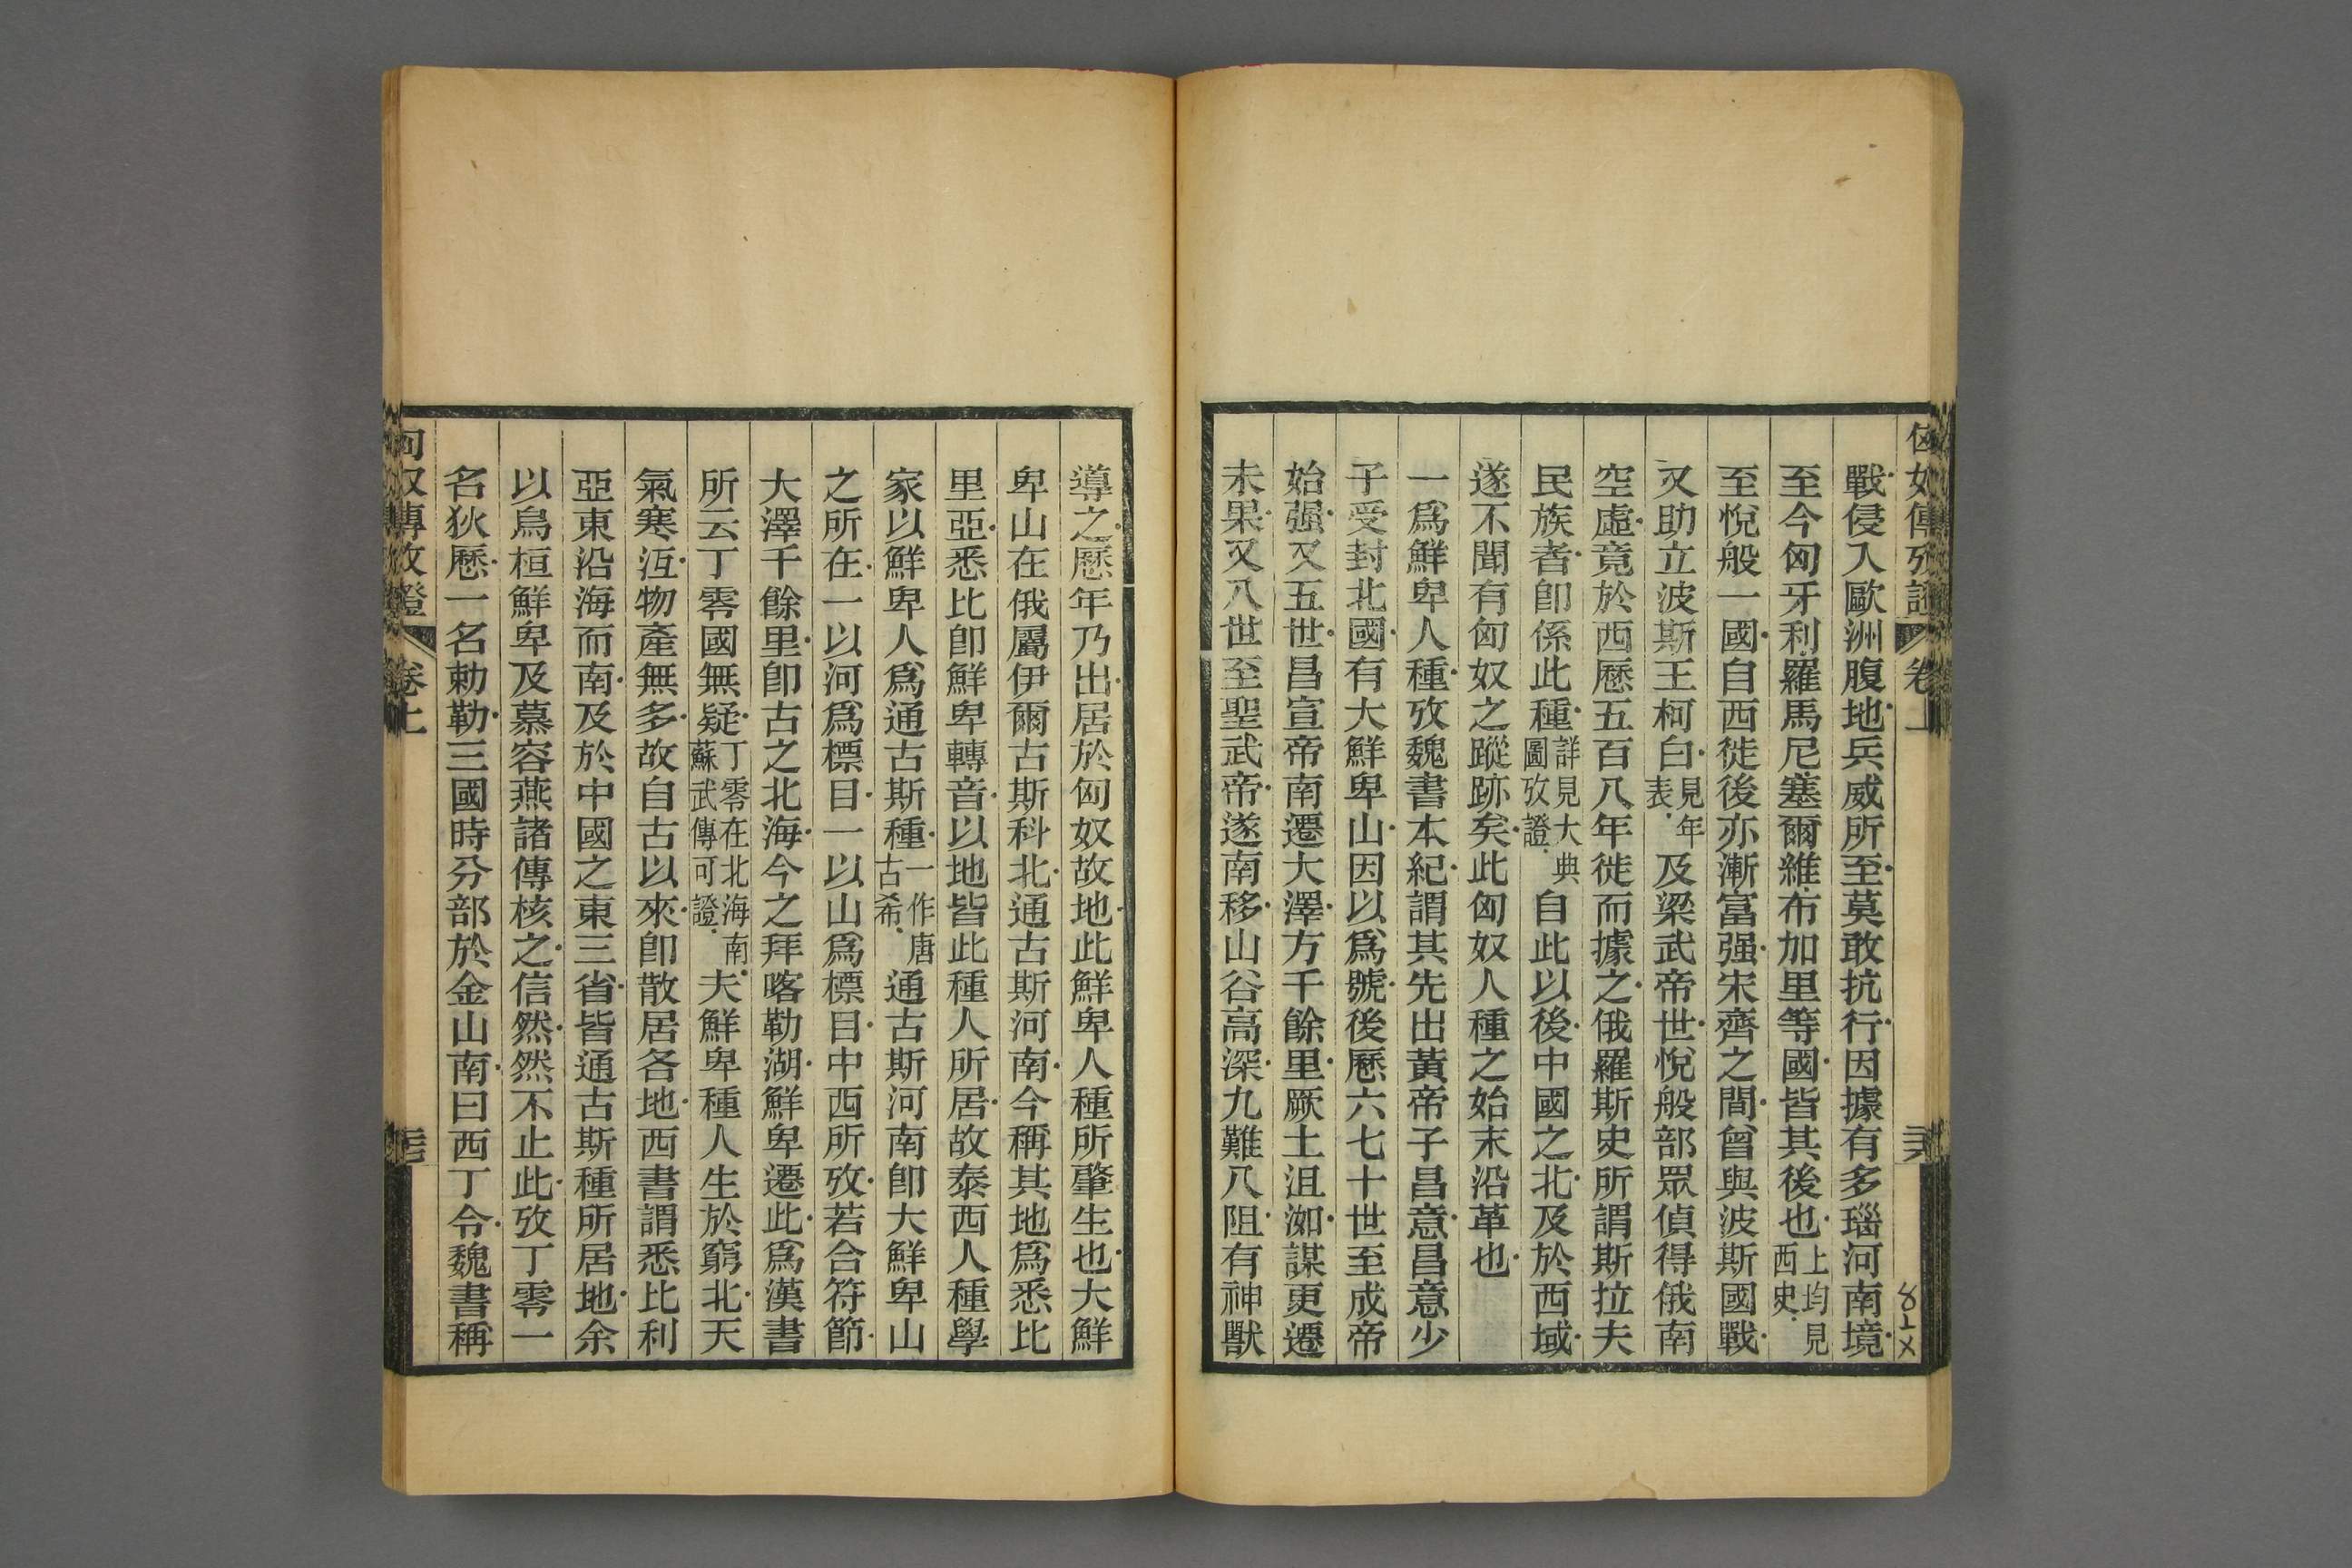 戰侵入歐洲腹地兵威所至莫敢抗行因據有多瑙河南境
至今匈牙利羅馬尼塞爾維布加里等國皆其後也上均見西史
至悅般一國自西徙後亦漸富强宋齊之間曾與波斯國戰
又助立波斯王柯白見年表及梁武帝世悅般部眾偵得俄南
空虛竟於西歷五百八年徙而據之俄羅斯史所謂斯拉夫
民族者卽係此種詳見大典圖攷證自此以後中國之北及於西域
遂不聞有匈奴之蹤跡矣此匈奴人種之始末沿革也
一爲鮮卑人種攷魏書本紀謂其先出黃帝子昌意昌意少
子受封北國有大鮮卑山因以爲號後歷六七十世至成帝
始强又五世昌宣帝南遷大澤方千餘里厥土沮洳謀更遷
未果又八世至聖武帝遂南移山谷高深九難八阻有神獸
導之歷年乃出居於匈奴故地此鮮卑人種所肇生也大鮮
卑山在俄屬伊爾古斯科北通古斯河南今稱其地爲悉比
里亞悉比卽鮮卑轉音以地皆此種人所居故泰西人種學
家以鮮卑人爲通古斯種一作唐古希通古斯河南卽大鮮卑山
之所在一以河爲標目一以山爲標目中西所攷若合符節
大澤千餘里卽古之北海今之拜喀勒湖鮮卑遷此爲漢書
所云丁零國無疑丁零在北海南蘇武傳可證夫鮮卑種人生於窮北天
氣寒沍物產無多故自古以來卽散居各地西書謂悉比利
亞東沿海而南及於中國之東三省皆通古斯種所居地余
以烏桓鮮卑及慕容燕諸傳核之信然然不止此攷丁零一
名狄歷一名勅勒三國時分部於金山南曰西丁令魏書稱
卷上